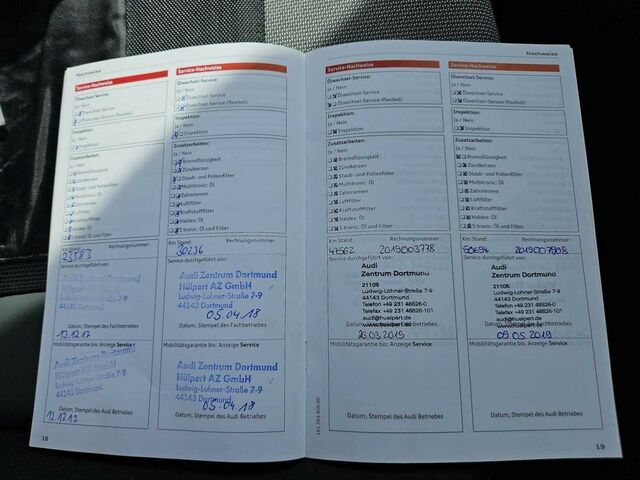 Nachweise
Service-Nachweise
Ölwechsel-Service:
Ja / Nein
Ölwechsel-Service
Ölwechsel-Service (flexibel)
Inspektion:
Ja / Nein
Inspektion
Zusatzarbeiten:
Ja / Nein
Bremsflüssigkeit
Zündkerzen
Staub- und Pollenfilter
Multitronic: Öl
Zahnriemen
Luftfilter
Kraftstofffilter
Haldex: Öl
S tronic: Öl
Km Stand: Rechnungsnummer:
23583
Service durchgeführt von:
Audi Zentrum Dortmund
Hülpert AZ GmbH
Ludwig-Lohner-Straße 7-9
44143 Dortmund
Datum, Stempel des Fachbetriebes
12.12.17
Mobilitätsgarantie bis: Anzeige Service
Audi Zentrum Dortmund
Hülpert AZ GmbH
Ludwig-Lohner-Straße 7-9
44143 Dortmund
Datum, Stempel des Audi Betriebes
12.12.17
18
Service-Nachweise
Ölwechsel-Service:
Ja / Nein
Ölwechsel-Service
Ölwechsel-Service (flexibel)
Inspektion:
Ja / Nein
Inspektion
Zusatzarbeiten:
Ja / Nein
Bremsflüssigkeit
Zündkerzen
Staub- und Pollenfilter
Multitronic: Öl
Zahnriemen
Luftfilter
Kraftstofffilter
Haldex: Öl
S tronic: Öl
Km Stand: Rechnungsnummer:
30236
Service durchgeführt von:
Audi Zentrum Dortmund
Hülpert AZ GmbH
Ludwig-Lohner-Straße 7-9
44143 Dortmund
05.04.18
Datum, Stempel des Fachbetriebes
Mobilitätsgarantie bis: Anzeige Service
Audi Zentrum Dortmund
Hülpert AZ GmbH
Ludwig-Lohner-Straße 7-9
44143 Dortmund
05.04.18
Datum, Stempel des Audi Betriebes
Nachweise
Service-Nachweise
Ölwechsel-Service:
Ja / Nein
Ölwechsel-Service
Ölwechsel-Service (flexibel)
Inspektion:
Ja / Nein
Inspektion
Zusatzarbeiten:
Ja / Nein
Bremsflüssigkeit
Zündkerzen
Staub- und Pollenfilter
Multitronic: Öl
Zahnriemen
Luftfilter
Kraftstofffilter
Haldex: Öl
S tronic: Öl
Km Stand: Rechnungsnummer:
47562 2019003778
Service durchgeführt von:
Audi
Zentrum Dortmund
21105
Ludwig-Lohner-Straße 7-9
44143 Dortmund
Telefon +49 231 48826-0
Telefax +49 231 48826-101
audi@huelpert.de
www.huelpert.de
Datum, Stempel des Fachbetriebes
26.03.2019
Mobilitätsgarantie bis: Anzeige Service
Datum, Stempel des Audi Betriebes
161.5R3.R50.00
Service-Nachweise
Ölwechsel-Service:
Ja / Nein
Ölwechsel-Service
Ölwechsel-Service (flexibel)
Inspektion:
Ja / Nein
Inspektion
Zusatzarbeiten:
Ja / Nein
Bremsflüssigkeit
Zündkerzen
Staub- und Pollenfilter
Multitronic: Öl
Zahnriemen
Luftfilter
Kraftstofffilter
Haldex: Öl
S tronic: Öl
Km Stand: Rechnungsnummer:
50694
Service durchgeführt von:
Audi
Zentrum Dortmund
21105
Ludwig-Lohner-Straße 7-9
44143 Dortmund
Telefon +49 231 48826-0
Telefax +49 231 48826-101
audi@huelpert.de
www.huelpert.de
Datum, Stempel des Fachbetriebes
09.05.2019
Mobilitätsgarantie bis: Anzeige Service
Datum, Stempel des Audi Betriebes
19